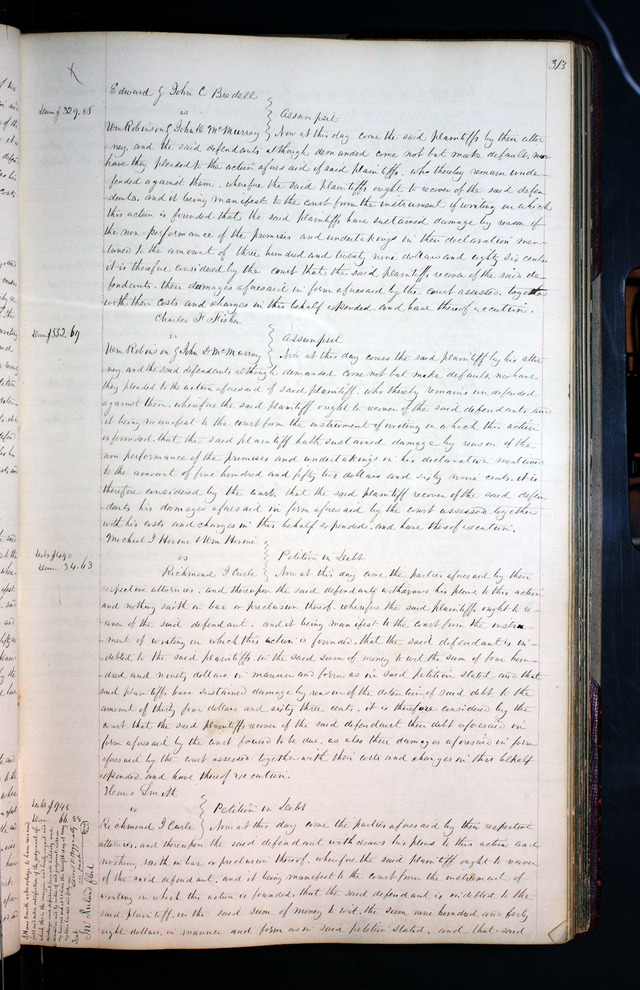 313
Edward & John C Bredell
vs
Assumpsit
Dam $329.86
Wm Robinson & John D McMurray Now at this day come the said plaintiffs by their attor
ney, and the said defendants although demanded come not but make default, nor
have they pleaded to the action aforesaid of said plaintiffs. who thereby remain unde-
fended against them. wherefore the said plaintiffs ought to recover of the said defen
dants. and it being manifest to the court from the instrument of writing on which
this action is founded, that the said plaintiffs have sustained damage by reason of
the non-performance of the promises and undertakings in their declaration men-
tioned to the amount of three hundred and twenty nine dollars and eighty six cents.
it is therefore considered by the court that the said plaintiffs recover of the said de-
fendants. their damages aforesaid in form aforesaid by the court assessed. together
with their costs and charges in this behalf expended. and have thereof execution.
Charles F. Fisher
vs
Assumpsit
Dam $552.69
Wm Robinson & John D McMurray Now at this day comes the said plaintiff by his attor
ney, and the said defendants although demanded come not but make default, nor have
they pleaded to the action aforesaid of said plaintiff. who thereby remains undefended
against them. wherefore the said plaintiff ought to recover of the said defendants. and
it being manifest to the court from the instrument of writing on which this action
is founded, that the said plaintiff hath sustained damage by reason of the
non performance of the promises and undertakings in his declaration mentioned
to the amount of five hundred and fifty two dollars and sixty nine cents. it is
therefore considered by the court. that the said plaintiff recover of the said defen
dants his damages aforesaid in form aforesaid by the court assessed. together
with his costs and charges in this behalf expended. and have thereof execution.
Michael J & Wm
vs
Petition in Debt
Debt $490
Dam 34.63
Richmond J Curle Now at this day come the parties aforesaid by their
respective attornies. and thereupon the said defendant withdraws his pleas to this action
and nothing saith in bar or preclusion thereof. wherefore the said plaintiffs ought to re-
cover of the said defendant. and it being manifest to the court from the instru-
ment of writing on which this action is founded. that the said defendant is in-
debted to the said plaintiffs. in the said sum of money to wit the sum of four hun-
dred and ninety dollars in manner and form as in said petition stated, and that
said plaintiffs have sustained damage by reason of the detention of said debt to the
amount of thirty four dollars and sixty three cents. it is therefore considered by the
court. that the said plaintiffs recover of the said defendant their debt aforesaid in
form aforesaid by the court found to be due. as also their damages aforesaid in form
aforesaid by the court assessed. together with their costs and charges in this behalf
expended. and have thereof execution.
Smith
vs
Petition in Debt
Debt $948
Dam 66.88
Richmond J Curle Now at this day come the parties aforesaid by their respective
attornies. and thereupon the said defendant withdraws his pleas to this action and
nothing saith in bar or preclusion thereof. wherefore the said plaintiff ought to recover
of the said defendant. and it being manifest to the court from the instrument of
writing on which this action is founded. that the said defendant is indebted to the
said plaintiff. in the said sum of money to wit. the sum nine hundred and forty
eight dollars. in manner and form as in said petition stated, and that said